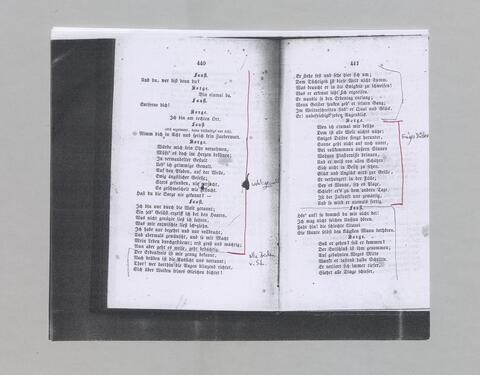 440
Faust.
Und du, wer bist denn du?
Sorge.
Bin einmal da.
Faust.
Entferne dich!
Sorge.
Ich bin am rechten Ort.
Faust
Nimm dich in Acht und sprich kein Zauberwort.
Sorge.
Würde mich kein Ohr vernehmen,
Müßt' es doch im Herzen dröhnen;
In verwandelter Gestalt
Ueb' ich grimmige Gewalt.
Auf den Pfaden, auf der Welle,
Ewig ängstlicher Geselle,
Stets gefunden, nie gesucht,
So geschmeichelt wie verflucht.
Hast du die Sorge nie gekannt?
Faust.
Ich bin nur durch die Welt gerannt;
Ein jed' Gelüst ergriff ich bei den Haaren,
Was nicht genügte ließ ich fahren,
Was mir entwischte ließ ich ziehn.
Ich habe nur begehrt und nur vollbracht,
Und abermals gewünscht, und so mit Macht
Mein Leben durchgestürmt; erst groß und mächtig;
Nun aber geht es weise, geht bedächtig.
Der Erdenkreis ist mir genug bekannt,
Nach drüben ist die Aussicht uns verrannt;
Thor! wer dorthin die Augen blinzend richtet,
Sich über Wolken seines Gleichen dichtet!
441
Er stehe fest und sehe hier sich um;
Dem Tüchtigen ist diese Welt nicht stumm.
Was braucht er in die Ewigkeit zu schweifen!
Was er erkennt läßt sich ergreifen.
Er wandle so den Erdentag entlang;
Wenn Geister spuken geh' er seinen Gang;
Im Weiterschreiten find' er Qual und Glück,
Er! unbefriedigt jeden Augenblick.
Sorge.
Wen ich einmal mir besitze
Dem ist alle Welt nichts nütze;
Ewiges Düstre steigt herunter,
Sonne geht nicht auf noch unter,
Bei vollkommnen äußern Sinnen
Wohnen Finsternisse drinnen,
Und er weiß von allen Schätzen
Sich nicht in Besitz zu setzen.
Glück und Unglück wird zur Grille,
Er verhungert in der Fülle;
Sey es Wonne, sey es Plage,
Schiebt er's zu dem andern Tage,
Ist der Zukunft nur gewärtig,
Und so wird er niemals fertig.
Faust.
Hör' auf! so kommst du mir nicht bei!
Ich mag nicht solchen Unsinn hören.
Fahr hin! die schlechte Litanei
Sie könnte selbst den klügsten Mann bethören.
Sorge.
Soll er gehen? soll er kommen?
Der Entschluß ist ihm genommen;
Auf gebahnten Weges Mitte
Wankt er tastend halbe Schritte.
Er verliert sich immer tiefer,
Siehet alle Dinge schiefer,